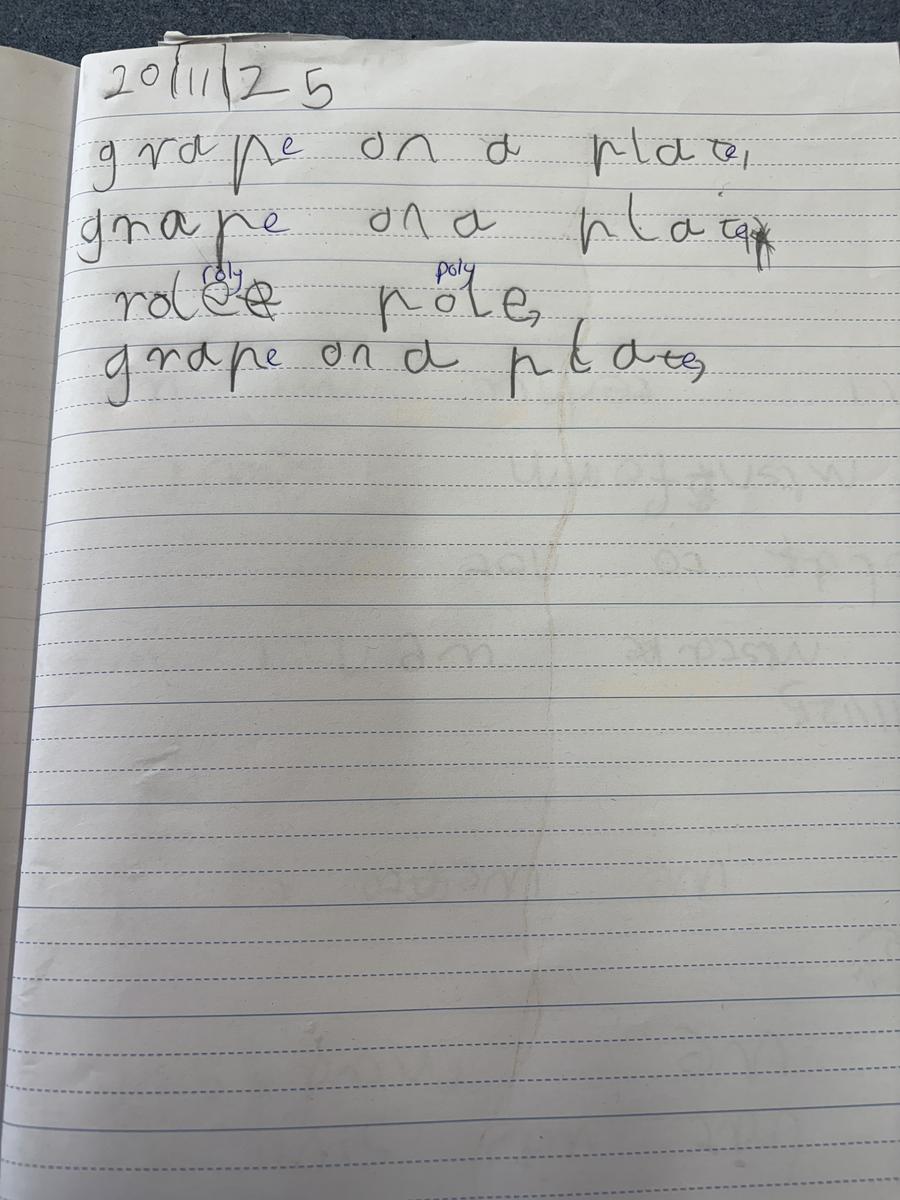 20/11/25
grape on a plate,
grape on a plate,
roly poly
role pole,
grape on a plate,